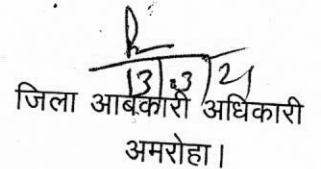 13.3.21
जिला आबकारी अधिकारी
अमरोहा।